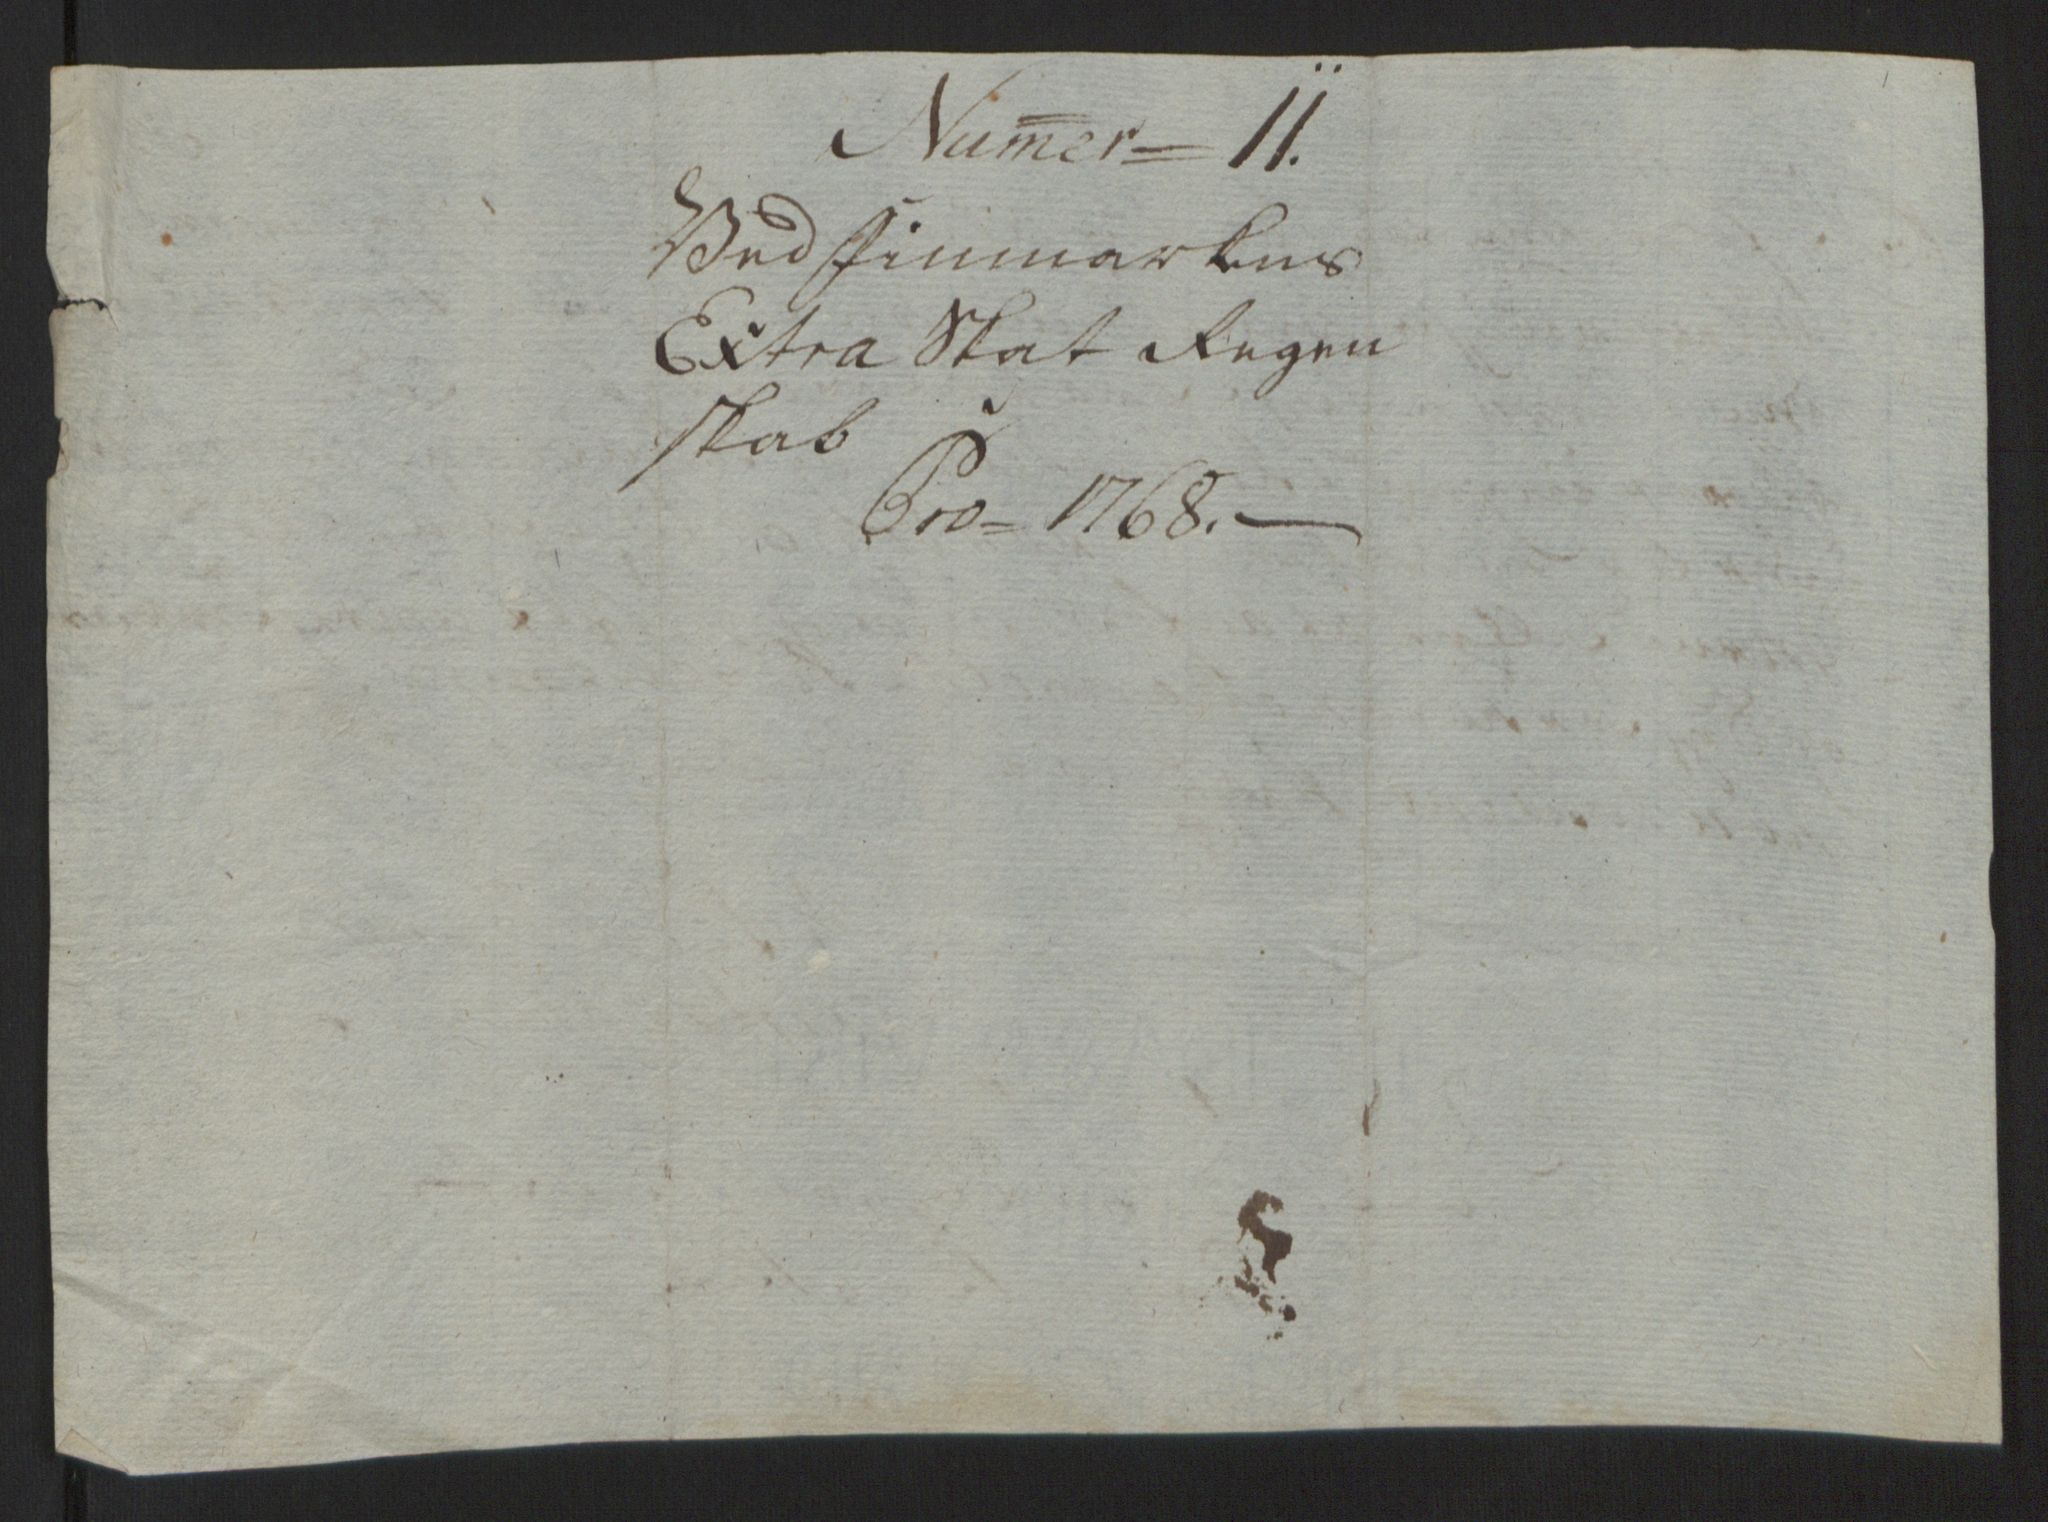 Num̄er= 11.
Ved Finmarkens
Extra Skat Regen
skab
Pro= 1768. —